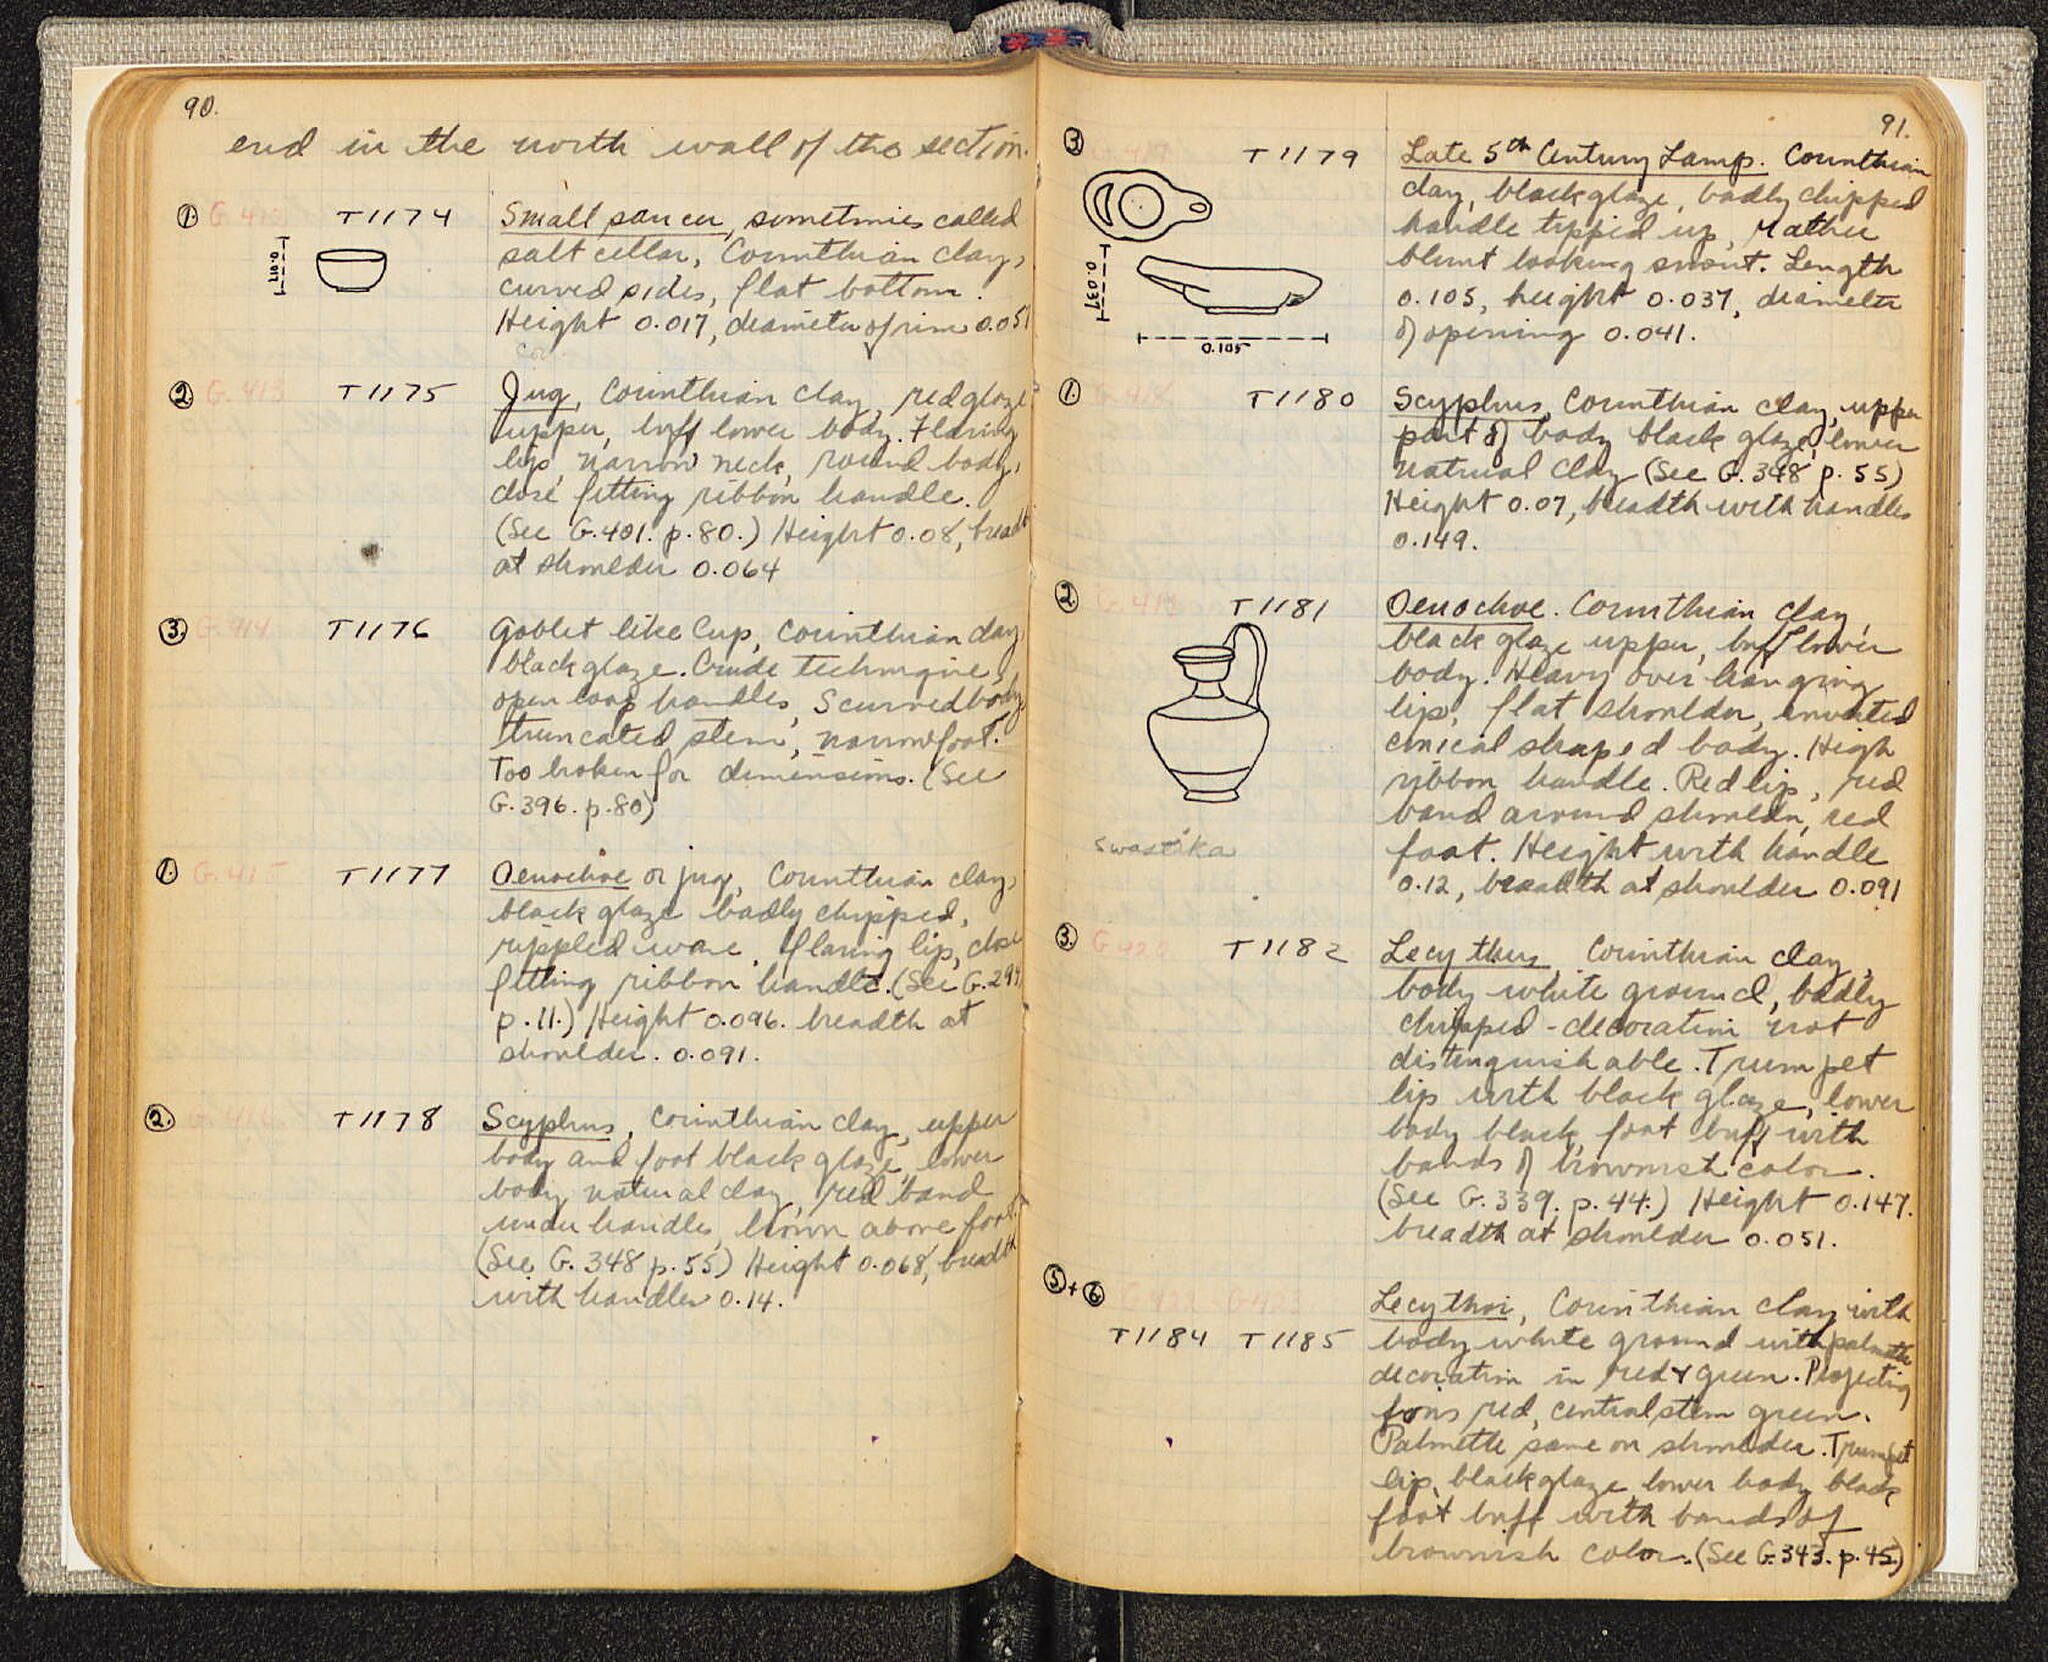 90.
end in the north wall of the section.
1. G.412 T1174 Small saucer, sometimes called
salt cellar, Corinthian clay,
curved sides, flat bottom.
Height 0.017, diameter of rim 0.051
0.017
2. G.413 T1175 Jug, Corinthian clay, red glaze
upper, buff lower body. Flaring
lip, narrow neck, round body,
close fitting ribbon handle.
(See G.401. p.80.) Height 0.08, breadth
at shoulder 0.064
3. G.414 T1176 Goblet like Cup, Corinthian clay,
black glaze. Crude technique,
open loop handles, S curved body,
truncated stem, narrow foot.
Too broken for dimensions. (See
G.396. p.80)
1. G.415 T1177 Oenochoe or jug, Corinthian clay,
black glaze badly chipped,
rippled ware, flaring lip, close
fitting ribbon handle. (See G.294
p.11.) Height 0.096. breadth at
shoulder. 0.091.
2. G.416 T1178 Scyphus, Corinthian clay, upper
body and foot black glaze, lower
body natural clay, red band
under handles, brown above foot.
(See G.348 p.55) Height 0.068, breadth
with handles 0.14.
91.
3. G.417 T1179 Late 5th Century Lamp. Corinthian
clay, black glaze, badly chipped
handle tipped up, rather
blunt looking snout. Length
0.105, height 0.037, diameter
of opening 0.041.
0.037
0.105
1. G.418 T1180 Scyphus, Corinthian clay, upper
part of body black glaze, lower
natrual clay (See G.348 p.55)
Height 0.07, breadth with handles
0.149.
2. G.419 T1181 Oenochoe. Corinthian clay,
black glaze upper, buff lower
body. Heavy over hanging
lip, flat shoulder, inverted
conical shaped body. High
ribbon handle. Red lip, red
band around shoulder, red
foot. Height with handle
0.12, breadth at shoulder 0.091
swastika
3. G.420 T1182 Lecythus, Corinthian clay,
body white ground, badly
chipped - decoration not
distinguishable. Trumpet
lip with black glaze, lower
body black, foot buff with
bands of brownish color.
(See G.339. p.44.) Height 0.147.
breadth at shoulder 0.051.
5 + 6. G.422 G423 Lecythoi, Corinthian clay with
T1184 T1185 body white ground with palmette
decoration in red & green. Projecting
red, central stem green.
Palmette same on shoulder. Trumpet
lip, black glaze lower body black
foot buff with bands of
brownish color. (See G.343. p.45.)